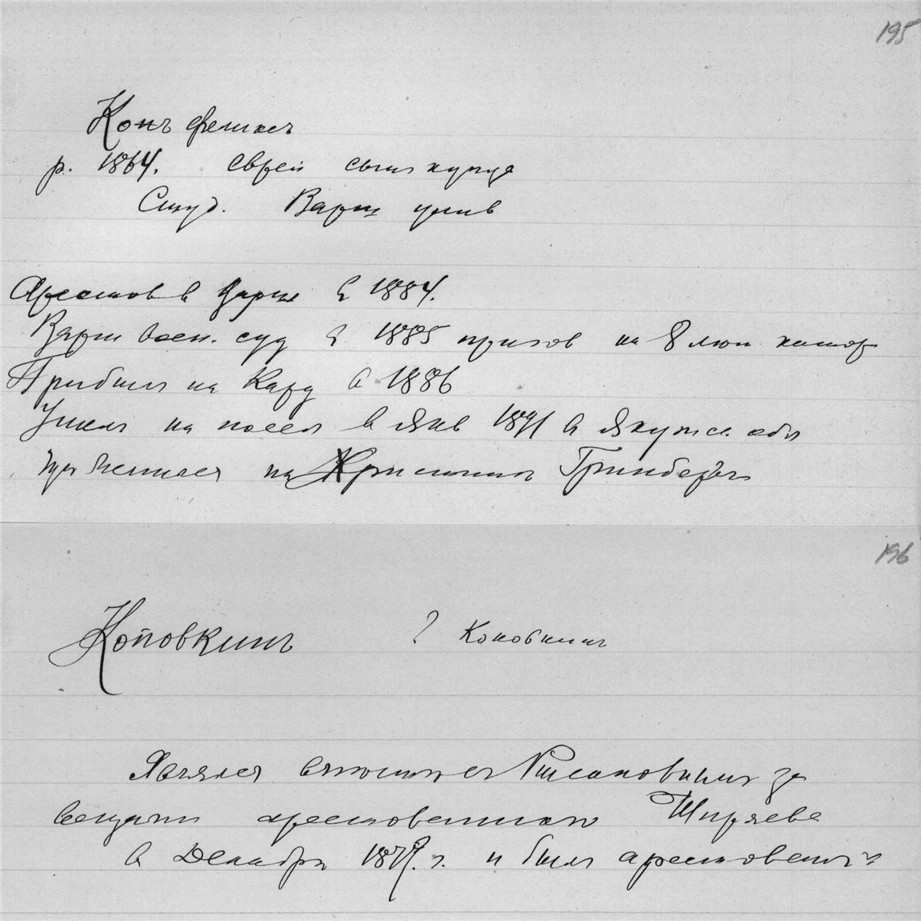 195
Конъ Феликсъ
р. 1864. еврей сынъ купца
Студ. Варш унив
Арестов в Варш в 1884.
Варш воен. суд в 1885 пригов на 8 лет катор
Прибыл на Кару в 1886
Ушел на посел в янв 1891 в Якутск обл
на Христинѣ Гринбергъ
196
Коповкинъ ? Коновкинъ
Явился вместе с за
вещами арестованного Ширяева
в Декабрѣ 1879. г. и был арестованъ